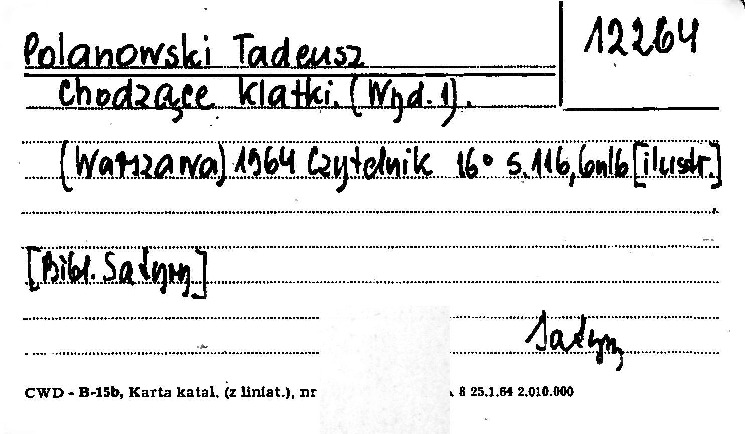 12264
Polanowski Tadeusz
Chodzące klatki. (Wyd. 1).
(Warszawa) 1964 Czytelnik 16° s. 116, 6nlb [ilustr.]
[Bibl. Satyry]
Satyry
CWD - B-15b, Karta katal. (z liniat.), nr A 8 25.1.64 2.010.000